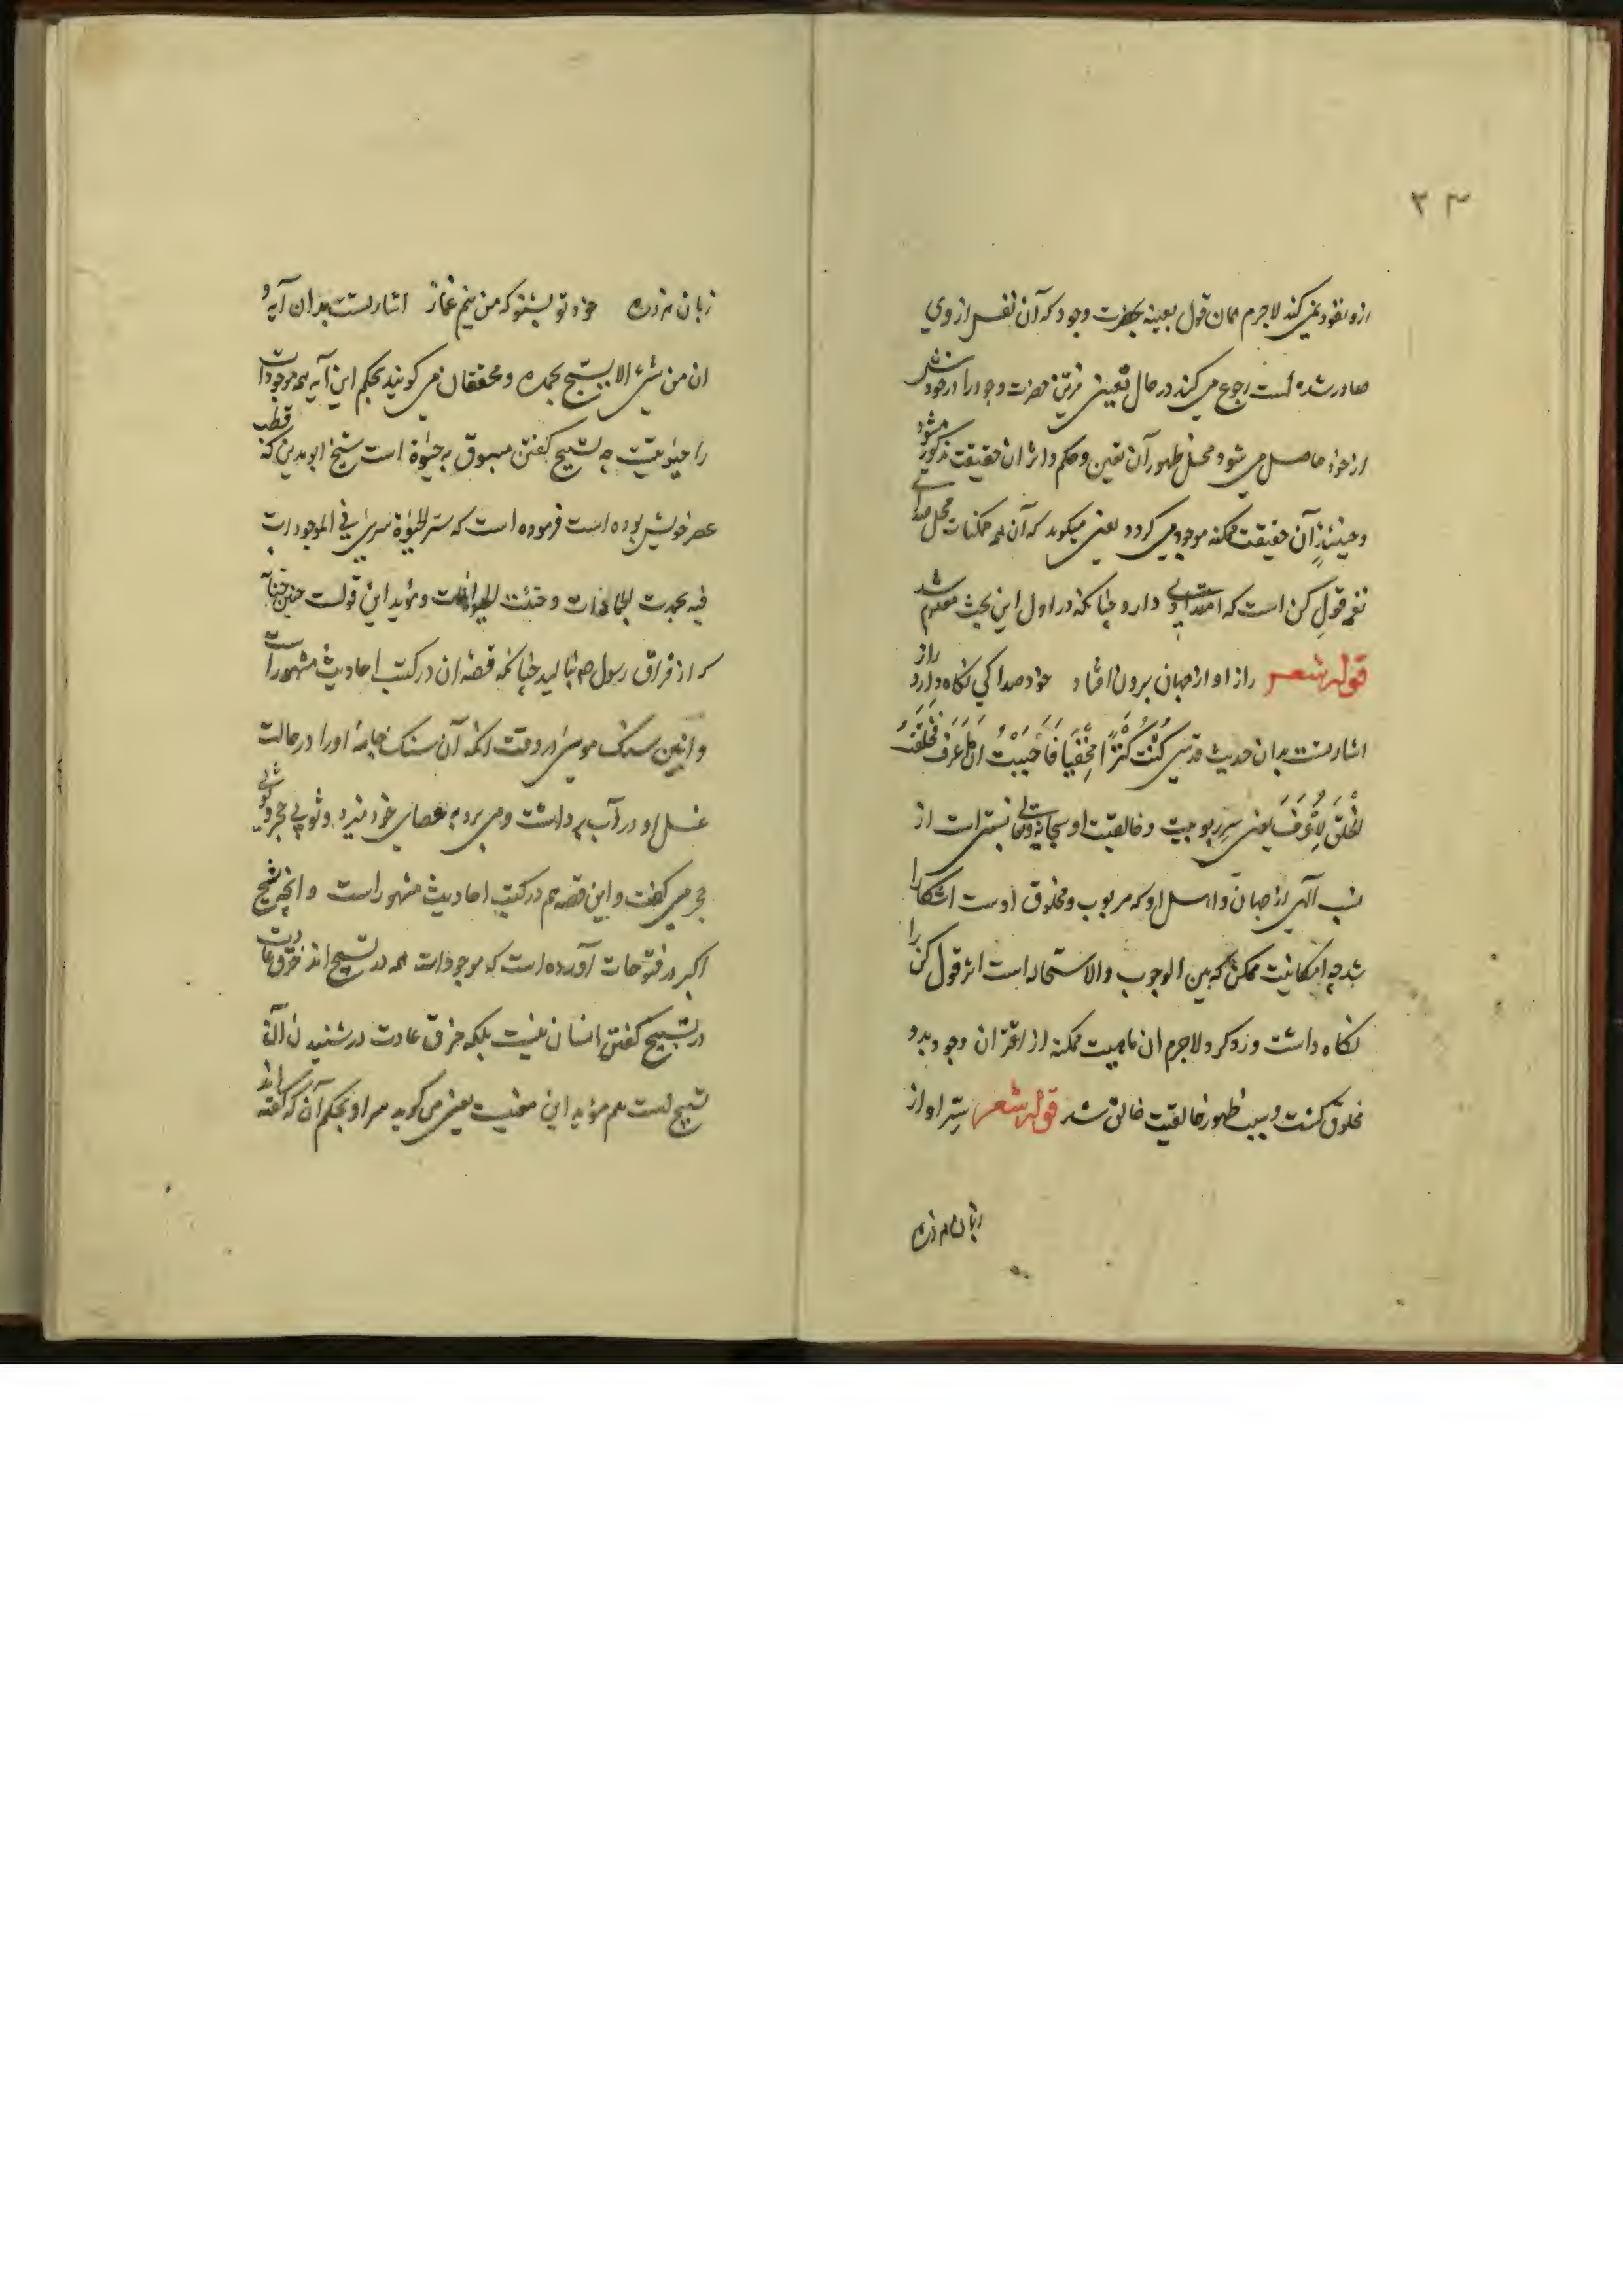 ۳۴
ازو نفوذ نمی کند لاجرم همان قول بعینه بحضرت وجود که آن نفس از وی
صادر شده است رجوع می کند در حال تعیینی مر حضرت وجود را در خود
از خود حاصل می شود و محل ظهور آن تعین و حکم و اثر ان حقیقت مذکور میشود
و حینئذٍ آن حقیقت ممکنه موجود می کردد یعنی میکوید که آن همه ممکنات محل صدای
نغمه قول کن است که امتدادی دارد چنانکه در اول این بحث معلوم شد
قوله شعر راز او از جهان برون افتاد خود صدا کی نکاه دارد راز
اشارتست بدان حدیث قدسی کُنْتُ کَنْزًا مَخْفِیًا فَاَحْبَبْتُ اَنْ اُعْرَفَ فَخَلَقْتُ
الْخَلْقَ لِاُعْرَفَ یعنی سِرّ ربوبیت و خالقیت او سبحانه و تعالی نسبتی است از
نسب الهی از جهان و اهل او که مربوب و مخلوق اوست اشکارا
شد چه امکانیت ممکن که بین الوجوب والاستحاله است اثر قول کن را
نکاه داشت و زد کرد لاجرم ان ماهیت ممکنه از اقتران وجود بدو
مخلوق کشت و سبب ظهور خالقیت خالق شد قوله شعر سِرّ او از
زبان هر ذره
زبان هر ذره خود تو بشنو که من نیم غماز اشارتست بدان آیه و
ان من شیٔ الا یسبّح بحمده و محققان می کویند بحکم این آیه همه موجودات
را حیوتیست چه تسبیح کفتن مسبوق به حیوٰة است شیخ ابو مدین که قطب
عصر خویش بوده است فرموده است که سر الحیوٰة سری فی الموجودات
فبه تجمدت الجمادات و حییت الحیوانات و مؤید این قولست حنین حنانه
که از فراق رسول ص بنالید چنانکه قصهٔ ان در کتب احادیث مشهور است
و انین سنک موسی در وقت انکه آن سنک جامهٔ او را در حالت
غسل او در آب برداشت و می برد به عصای خود میزد و ثوبی حجر و ثوبی
حجر می کفت و این قصه هم در کتب احادیث مشهور است و انچه شیخ
اکبر در فتوحات آورده است که موجودات همه در تسبیح اند خرق عادت
در تسبیح کفتن انسان نیست بلکه خرق عادت در شنیدن آن
تسبیح است هم مؤید این معنیست یعنی می کوید سر او بحکم آن که کفته اند